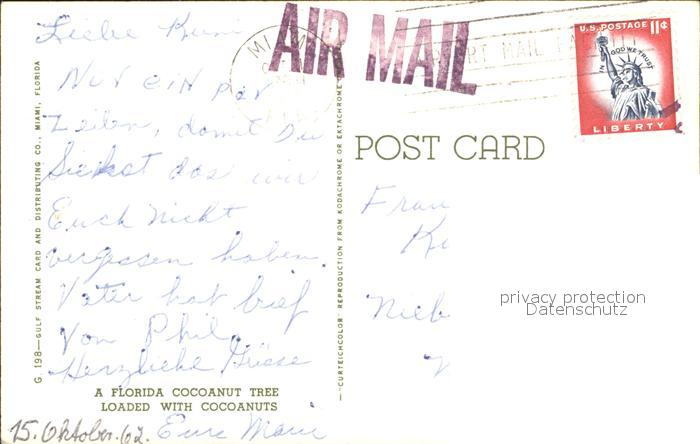 Liebe Kuni
Nur ein par
Zeilen, damit Du
siehst das wir
Euch nicht
vergessen haben.
Vater hat brief
von Phil.
Herzliche Grüsse
Eure
15. Oktober. 62.
A FLORIDA COCOANUT TREE
LOADED WITH COCOANUTS
G 198—GULF STREAM CARD AND DISTRIBUTING CO., MIAMI, FLORIDA
"CURTEICHCOLOR" REPRODUCTION FROM KODACHROME OR EKTACHROME
MIAMI
AIR MAIL
U.S. POSTAGE 11¢
IN GOD WE TRUST
LIBERTY
POST CARD
Frau
privacy protection
Datenschutz